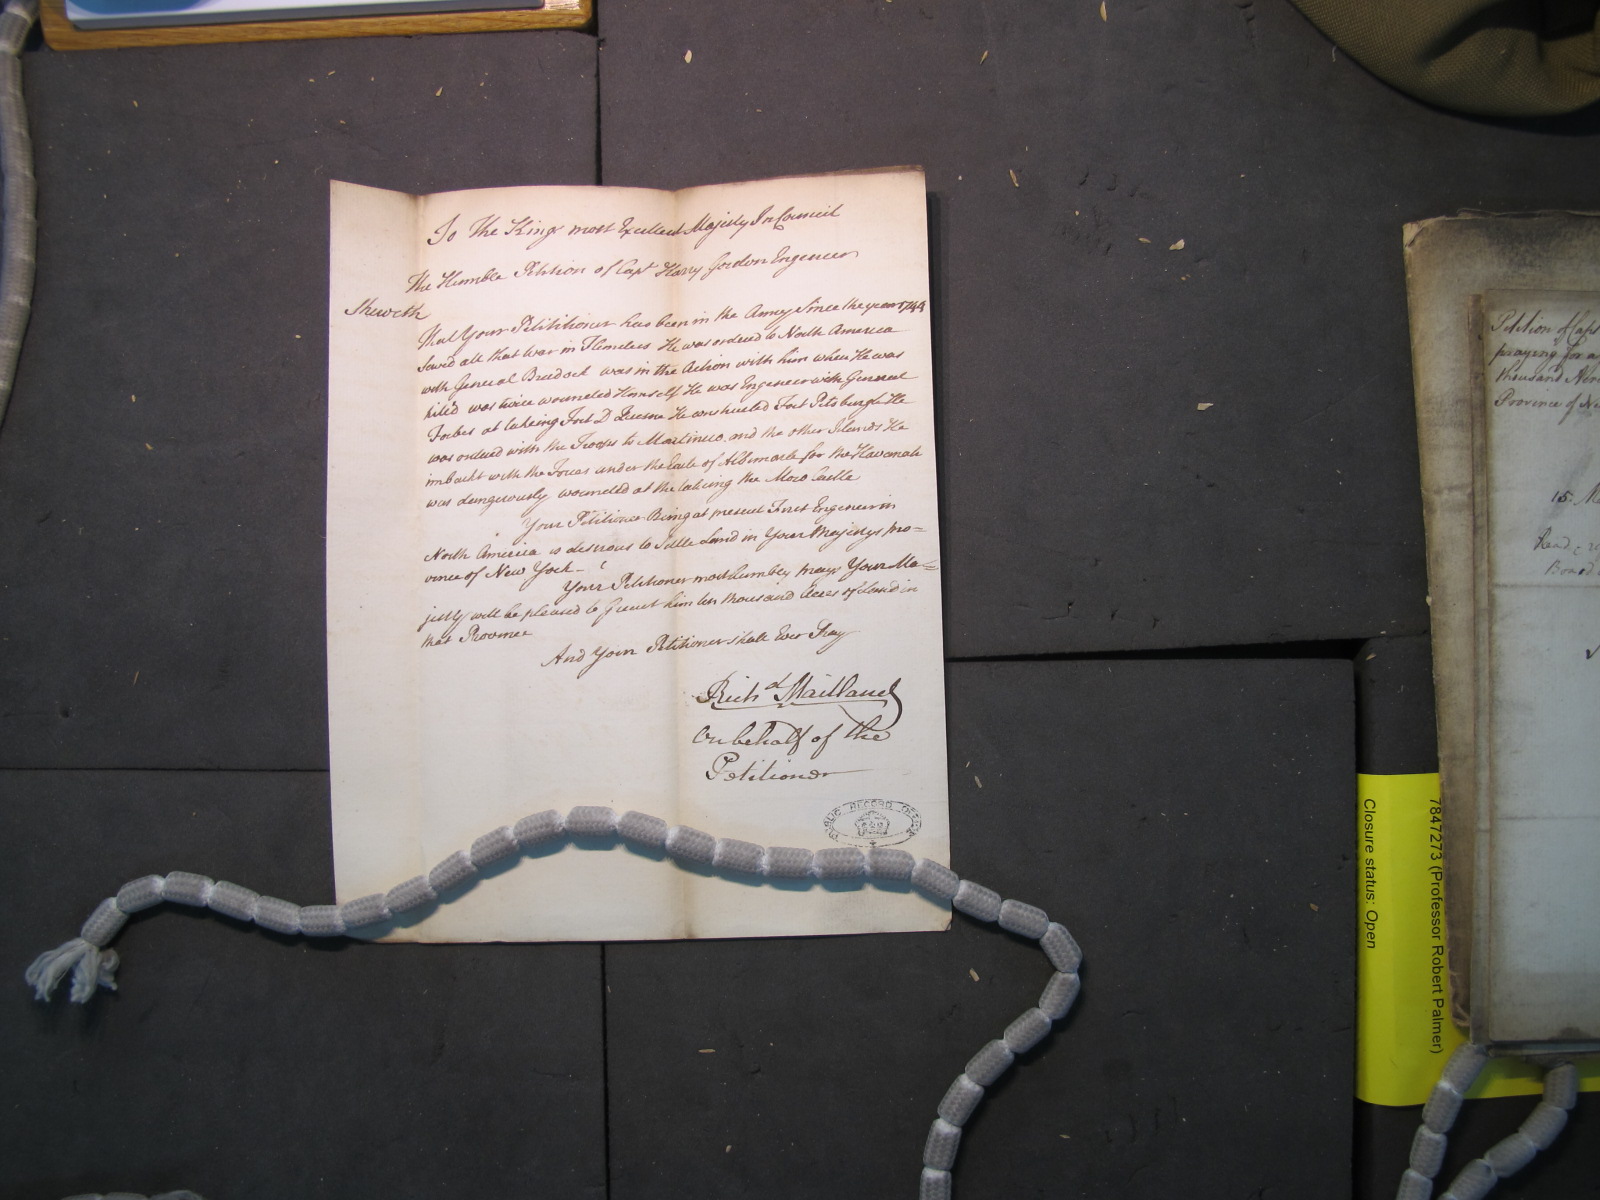 To The Kings most Excellent Majesty In Council
The Humble Petition of Capt Harry Gordon Engeneer
Sheweth
That Your Petititioner has been in the Army Since the year 1744
Served all that War in Flanders He was ordered to North America
with General Bradock was in the Action with him when He was
kill'd was twice wounded Himself He was Engeneer with General
Forbes at takeing Fort D Quesne He constructed Fort Pitsburgh He
was ordered with the Troops to Martinico and the other Islands He
imbarkt with the Forces under the Earle of Albemarle for the Havanah
was dangerously wounded at the takeing the Moro Castle
Your Petitioner Being at present First Engeneer in
North America is desirous to Settle Land in Your Majestys Pro=
vince of New York -
Your Petitioner most humbly prays Your Ma=
jesty will be pleased to Grant him ten thousand Acres of Land in
that Province
And Your Petitioner shall Ever Pray
Richd Maitland
On behalf of the
Petitioner
PUBLIC RECORD OFFICE
Petition of Capt
praying for a
thousand
Province of Ne
15
Read
Board
7847273 (Professor Robert Palmer)
Closure status: Open